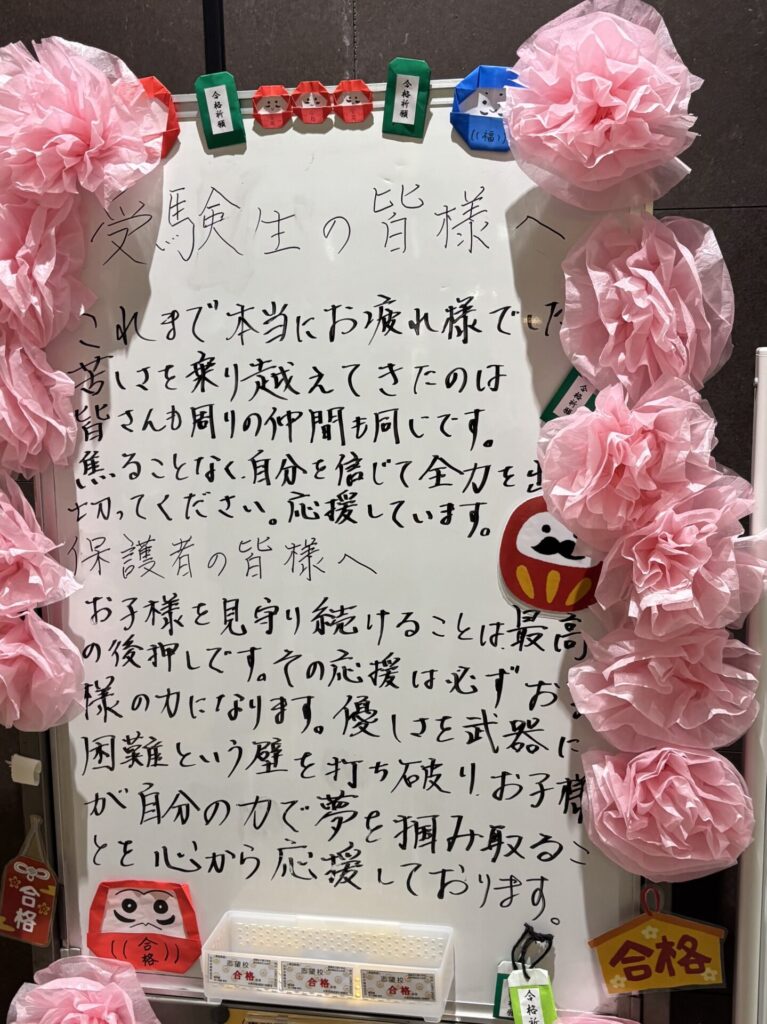 合格祈願
合格祈願
福
受験生の皆様へ
これまで本当にお疲れ様でした
苦しさを乗り越えてきたのは
皆さんも周りの仲間も同じです。
焦ることなく、自分を信じて全力を出
切ってください。応援しています。
合格祈願
保護者の皆様へ
お子様を見守り続けることは、最高
の後押しです。その応援は必ずお子
様の力になります。優しさを武器に
困難という壁を打ち破り、お子様
が自分の力で夢を掴み取るこ
とを心から応援しております。
合格
合格
志望校
合格
志望校
合格
志望校
合格
合格祈願
合格